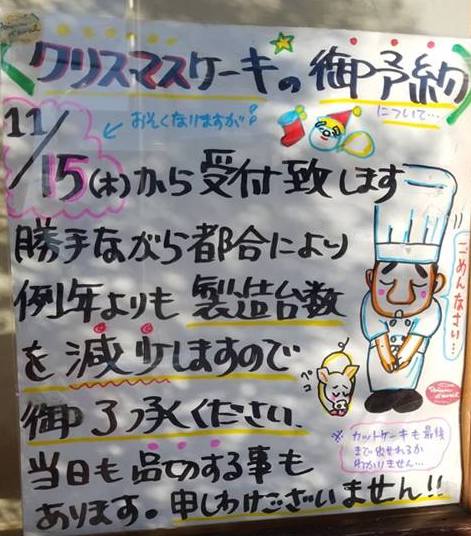 クリスマスケーキの御予約
について…
おそくなりますが!!
11/15(木)から受付致します
勝手ながら都合により
例年よりも製造台数
を減少しますので
御了承ください。
当日も品切れする事も
あります。申しわけございません!!
ごめんなさい…
ペコ
※カットケーキも最後
まで出せれるか
わかりません…